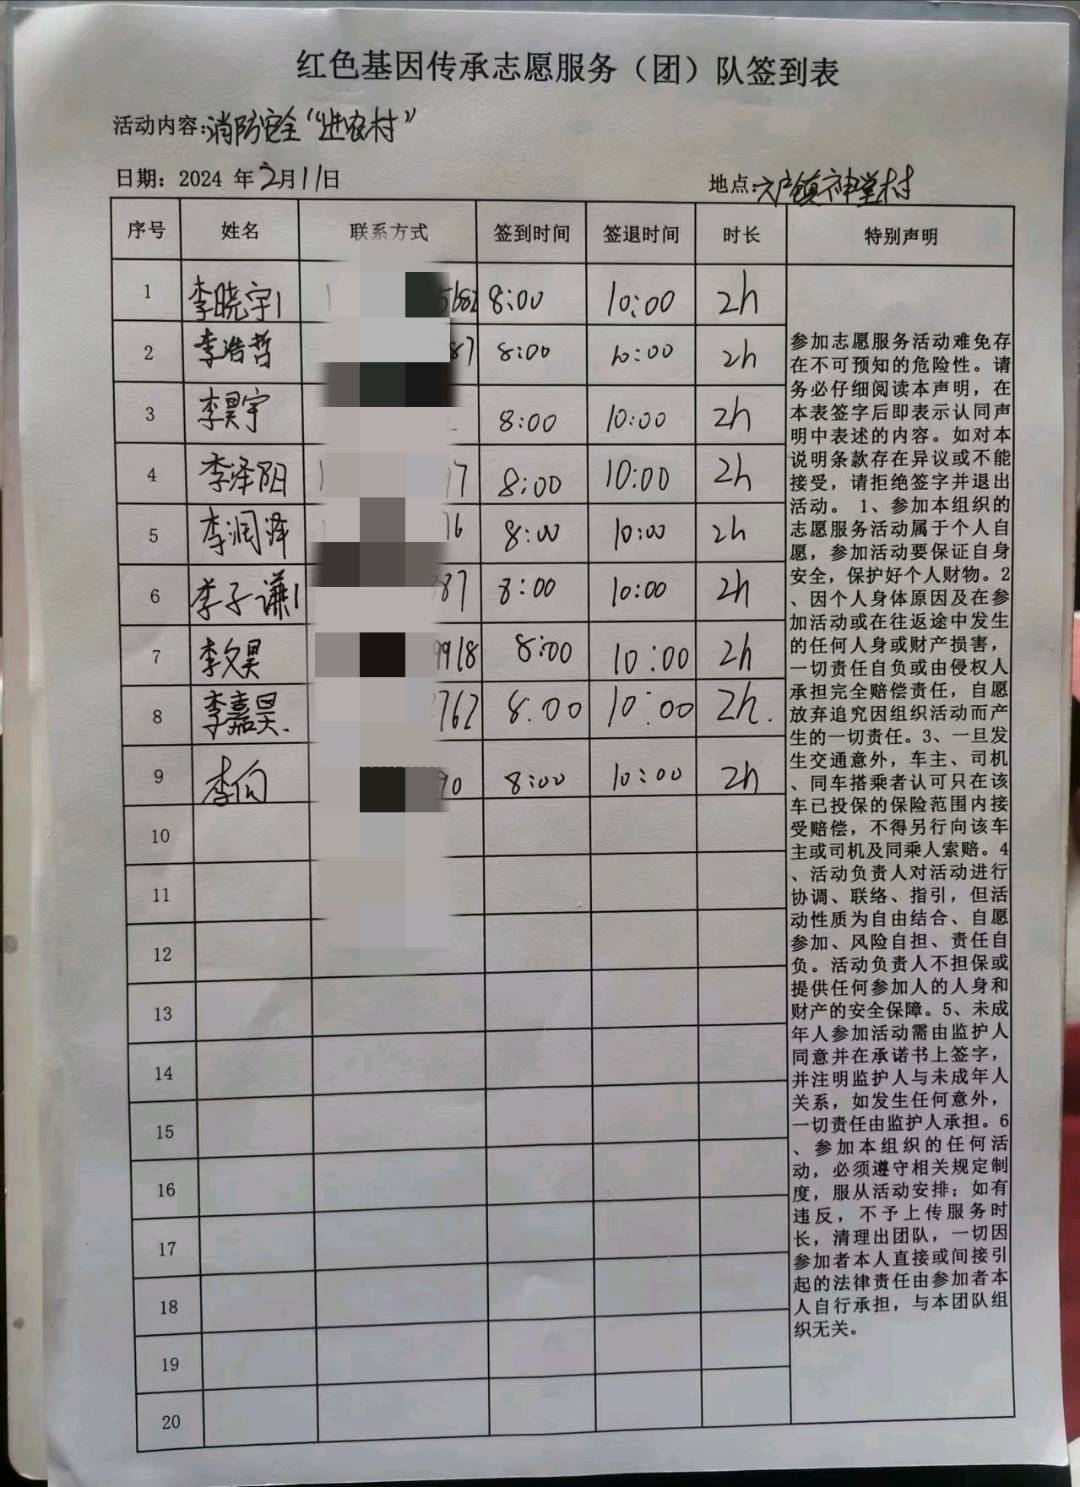 红色基因传承志愿服务（团）队签到表
活动内容:消防安全“进农村”
日期：2024 年2月11日 地点:六户镇神堂村
序号 姓名 联系方式 签到时间 签退时间 时长 特别声明
1 李晓宇1 8:00 10:00 2h
2 李浩哲 87 8:00 10:00 2h
3 李昊宇 8:00 10:00 2h
4 李泽阳 1 17 8:00 10:00 2h
5 李润泽 16 8:00 10:00 2h
6 李子谦1 87 8:00 10:00 2h
7 李文昊 9918 8:00 10:00 2h
8 李嘉昊. 762 8:00 10:00 2h.
9 李向 90 8:00 10:00 2h
10
11
12
13
14
15
16
17
18
19
20
参加志愿服务活动难免存
在不可预知的危险性。请
务必仔细阅读本声明，在
本表签字后即表示认同声
明中表述的内容。如对本
说明条款存在异议或不能
接受，请拒绝签字并退出
活动。 1、参加本组织的
志愿服务活动属于个人自
愿，参加活动要保证自身
安全，保护好个人财物。2
、因个人身体原因及在参
加活动或在往返途中发生
的任何人身或财产损害，
一切责任自负或由侵权人
承担完全赔偿责任，自愿
放弃追究因组织活动而产
生的一切责任。3、一旦发
生交通意外，车主、司机
、同车搭乘者认可只在该
车已投保的保险范围内接
受赔偿，不得另行向该车
主或司机及同乘人索赔。4
、活动负责人对活动进行
协调、联络、指引，但活
动性质为自由结合、自愿
参加、风险自担、责任自
负。活动负责人不担保或
提供任何参加人的人身和
财产的安全保障。5、未成
年人参加活动需由监护人
同意并在承诺书上签字，
并注明监护人与未成年人
关系，如发生任何意外，
一切责任由监护人承担。6
、参加本组织的任何活
动，必须遵守相关规定制
度，服从活动安排；如有
违反，不予上传服务时
长，清理出团队，一切因
参加者本人直接或间接引
起的法律责任由参加者本
人自行承担，与本团队组
织无关。